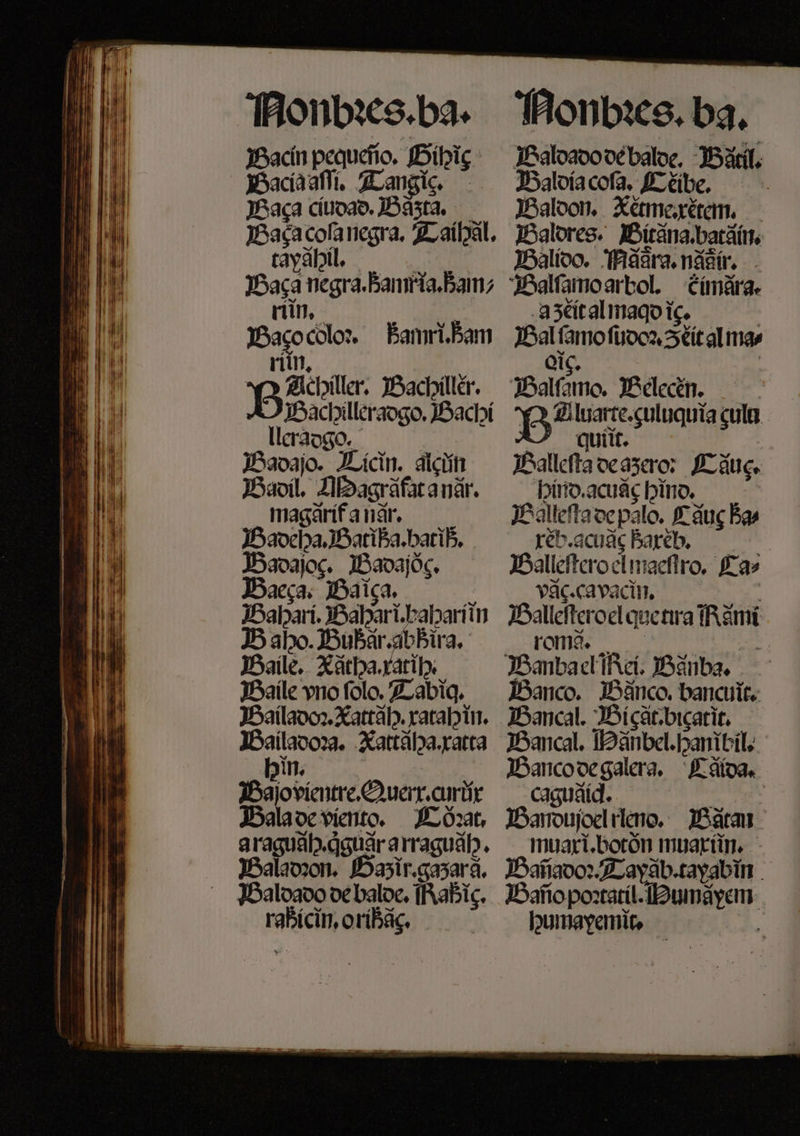 Nonbres.ba.
Bacin pequeño. Mibiç
Bacia assi. Tangiç.
Baça ciudad. Básta.
Baça cosa negra. Taihàl.
tayàhil.
Baça negra. hamrĩa. ham
riin.
Baço color. hamri. ham
riin.
Bachiller. Bachillér.
Bachilleradgo. Bachi
lleradgo.
Badajo. Licin. alçũn
Badil. Almagráfat anàr.
magàrif anàr.
Badeha. Batiha. batih.
Badajoç. Badajóç.
Baeça. Baiça.
Bahari. Bahari. bahariin
Baho. Buhár. abhira.
Baile. Xátha. xatih.
Baile vno solo. Tabiq.
Bailador. Xattàh. xatahin.
Bailadora. Xattàha. xatta
hin.
Bajo vientre. Querx. curũx
Bala de viento. Córat.
araguàh. qguàr arraguàh.
Baladron. Gazir. gazarà.
Baldado de balde. Rabiç.
rabicin, oribàç.
Nonbres. ba.
Baldado de balde. Bàtil.
Baldia cosa. Cèibe.
Baldon. Xètme. xètem.
Baldres. Bitàna. batàin.
Balido. Naàra. naàir.
Balsamo arbol. Cimàra.
azèit almaqdiç.
Balsamo sudor. Zèit almaq
diç.
Balsamo. Belecèn.
Baluarte. culuquia culu
quiit.
Ballesta de azero: Càuç.
hind. acuàç hind.
Ballesta de palo. Càuç ha
xèb. acuàç harèb.
Ballestero el maestro. Ca
vàç. cavacin.
Ballestero el que tira Ràmi
romà.
Banba el Rei. Bànba.
Banco. Bànco. bancuit.
Bancal. Bicàt. bicatit.
Bancal. Hànbel. hanibil.
Banco de galera. Càida.
caguàid.
Bandujo el rleno. Bàtan
muaxi. botòn muaxiin.
Bañador. Tayàb. tayabin
Baño portatil. Humàyem
humayemit.